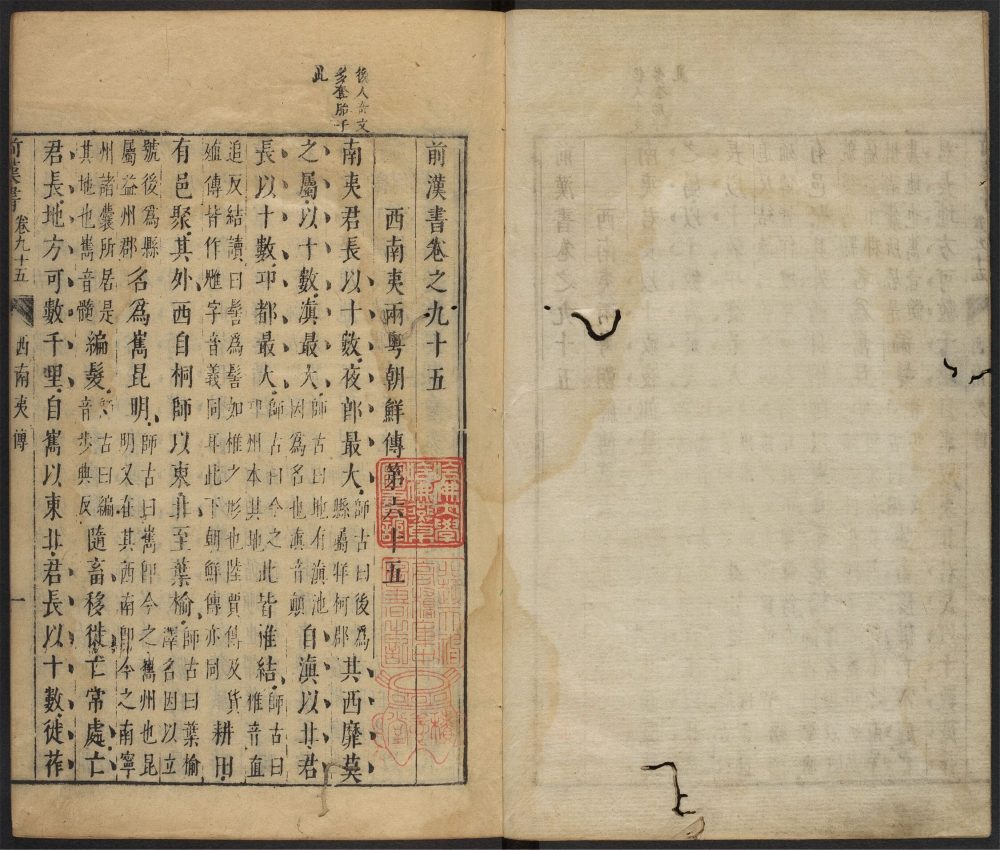 後人古文
多奪胎于
此
前漢書卷之九十五
西南夷兩粵朝鮮傳第六十五
南夷君長以十數夜郎最大師古曰後爲縣屬牂柯郡其西靡莫
之屬以十數滇最大師古曰地有滇池因爲名也滇音顛自滇以北君
長以十數卭都最大師古曰今之卭州本其地此皆椎結師古曰椎音直
追反結讀曰髻爲髻如椎之形也陸賈傳及貨殖傳皆作魋字音義同耳此下朝鮮傳亦同耕田
有邑聚其外西自桐師以東北至葉榆師古曰葉榆澤名因以立
號後爲縣屬益州郡名爲巂昆明師古曰巂即今之巂州也昆明又在其西南即今之南寧
州諸爨所居是其地也巂音髓編髮師古曰編音步典反隨畜移徙亡常處亡
君長地方可數千里自巂以東北君長以十數徙莋
前漢書 卷九十五 西南夷傳 一
哈佛大學
哈佛燕京